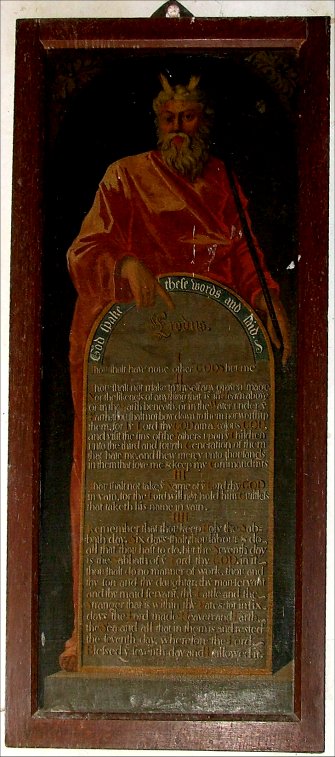 God spake these words and said
Thou shalt have none other GODS but me
II
Thou shalt not make to thyself any graven image
Nor the likeness of any thing that is in heaven above
or in the Earth beneath, or in the Water under ye
Earth thou shalt not bow down to them nor worship
them, for I ye Lord thy GOD am a Jealous GOD
and visit the sins of the fathers upon ye Children
unto the third and fourth Generation of them
that hate me, and shew mercy unto thousands
in them that love me & keep my commandmts
III
Thou shalt not take ye Name of ye Lord thy GOD
in vain, for the Lord will not hold him Guiltless
that taketh his name in vain.
IIII
Remember that thou keep holy the Sab-
bath day. Six days shalt thou labour & do
all that thou hast to do, but the Seventh day
is the Sabbath of ye Lord thy GOD. in it
thou shalt do no manner of work, thou and
thy son and thy daughter, thy man servant
and thy maid servant, thy Cattle and the
stranger that is within thy Gates, for in six
days the Lord made Heaven and Earth
the Sea and all that in them is and rested
the seventh day, wherefore the Lord
Blessed ye seventh day and Hallowed it.